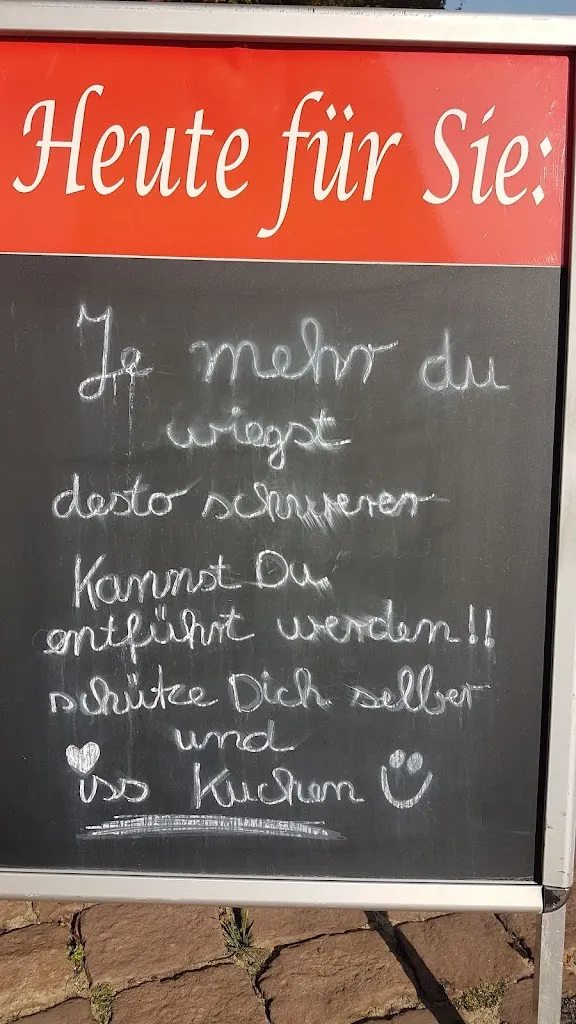 Heute für Sie:
Je mehr du
wiegst
desto schwerer
Kannst Du
entführt werden!!
schütze Dich selber
und
iss Kuchen